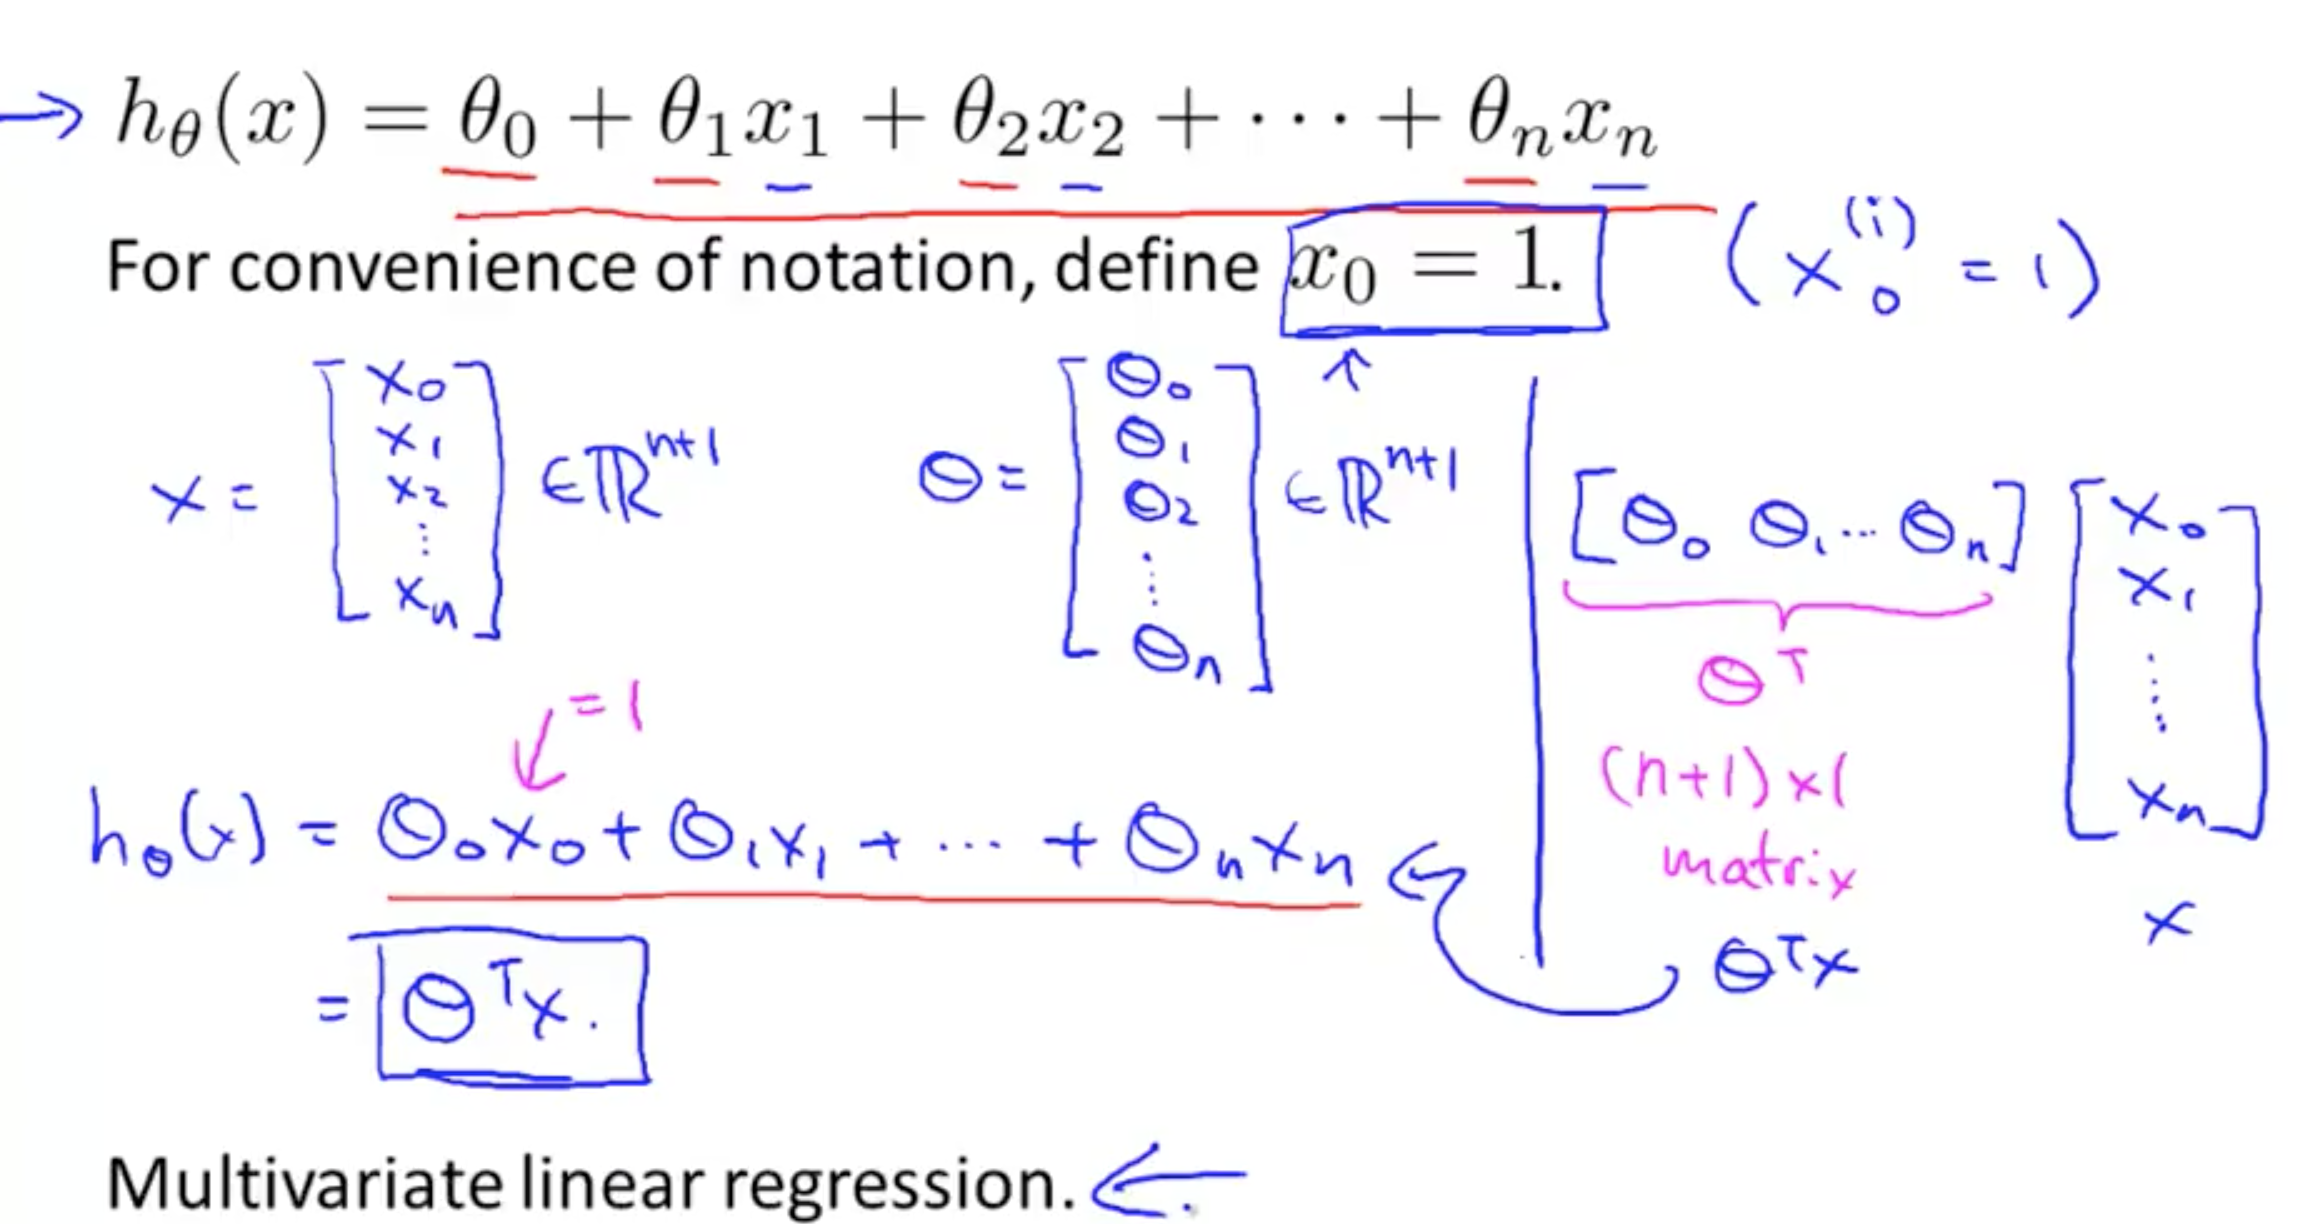 → hθ(x) = θ₀ + θ₁x₁ + θ₂x₂ + ⋯ + θₙxₙ
For convenience of notation, define x₀ = 1. (x₀⁽ⁱ⁾ = 1)
↑
x = [x₀ x₁ x₂ ⋮ xₙ] ∈ ℝⁿ⁺¹
θ = [θ₀ θ₁ θ₂ ⋮ θₙ] ∈ ℝⁿ⁺¹
= 1
hθ(x) = θ₀x₀ + θ₁x₁ + ⋯ + θₙxₙ
= θᵀx.
[θ₀ θ₁ ⋯ θₙ] [x₀ x₁ ⋮ xₙ]
θᵀ
(n+1) × 1
matrix
x
θᵀx
Multivariate linear regression. ←